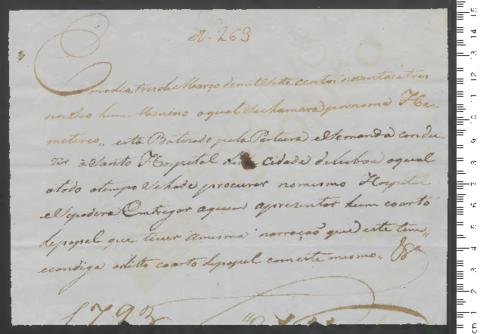 N. 263
Em odia tres de Março de mil e Sete centos noventa e tres
nasceo hum Menino aqual Se chamara por nome He
meterio,, esta Batizado pela Parteira e Se manda condu
zir a Santo Hospital desta Cidade de Lisboa aqual
a todo otempo Se hade procurar no mesmo Hospital
e Se podera Entregar aquem aprezentar hum coarto
de papel que tiver a mesma narração que este tem,
econdiga o ditto coarto de papel com este mesmo.
1793